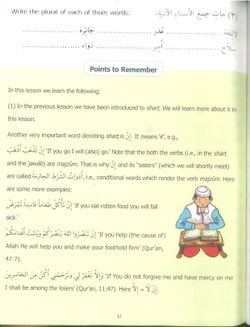 Write the plural of each of these words:
(٣) هات جمع الأسماء الآتية:
لائحة غدير جائزة
سلاح أمير دواء
Points to Remember
In this lesson we learn the following:
(1) In the previous lesson we have been introduced to sharṭ. We will learn more about it in
this lesson.
Another very important word denoting sharṭ is إِنْ. It means 'if', e.g.,
إِنْ تَذْهَبْ أَذْهَبْ 'If you go I will (also) go.' Note that the both the verbs (i.e., in the sharṭ
and the jawāb) are majzūm. That is why إِنْ and its "sisters" (which we will shortly meet)
are called أَدَوَاتُ الشَّرْطِ الجَازِمَةُ, i.e., conditional words which render the verb majzūm. Here
are some more examples:
إِنْ تَأْكُلْ طَعَامًا فَاسِدًا تَمْرَضْ 'If you eat rotten food you will
fall sick.'
إِنْ تَنْصُرُوا اللهَ يَنْصُرْكُمْ وَيُثَبِّتْ أَقْدَامَكُمْ 'If you help (the cause of)
Allah He will help you and make your foothold firm' (Qur'an,
47:7).
وَإِلَّا تَغْفِرْ لِي وَتَرْحَمْنِي أَكُنْ مِنَ الخَاسِرِينَ 'If You do not forgive me and have mercy on me
I shall be among the losers' (Qur'an, 11:47). Here إِلَّا = إِنْ لَا.